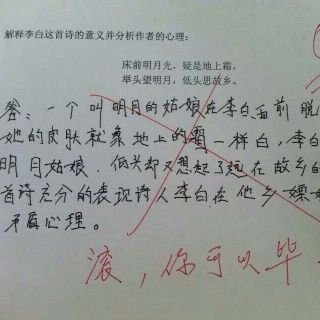 解释李白这首诗的意义并分析作者的心理:
床前明月光,疑是地上霜,
举头望明月,低头思故乡。
答:一个叫明月的姑娘在李白面前脱
她的皮肤就象地上的霜一样白,李白
明月姑娘.低头却又想起了远在故乡的
首诗充分的表现诗人李白在他乡嫖
矛盾心理。
滚,你可以毕